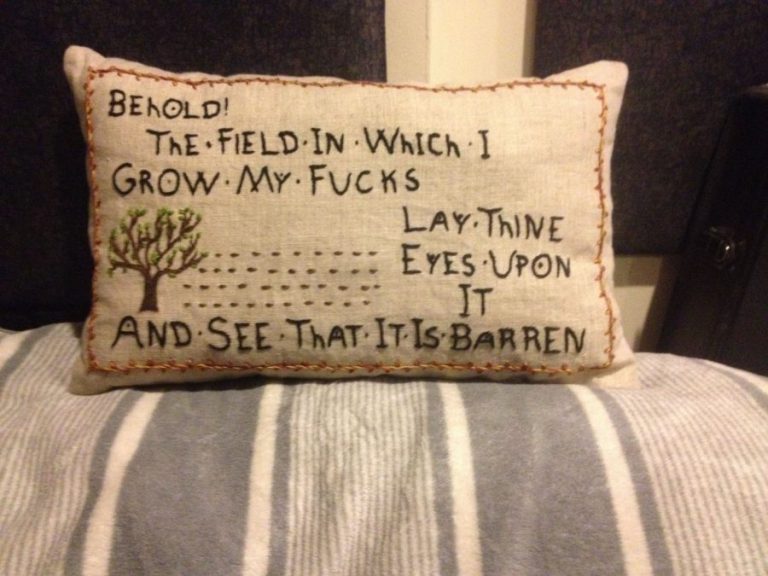 BEhOLD!
ThE·FIELD·IN·WhICh·I
GROW·MY·FUCKS
LAY·ThINE
EYES·UPON
IT
AND·SEE·ThAT·IT·IS·BARREN